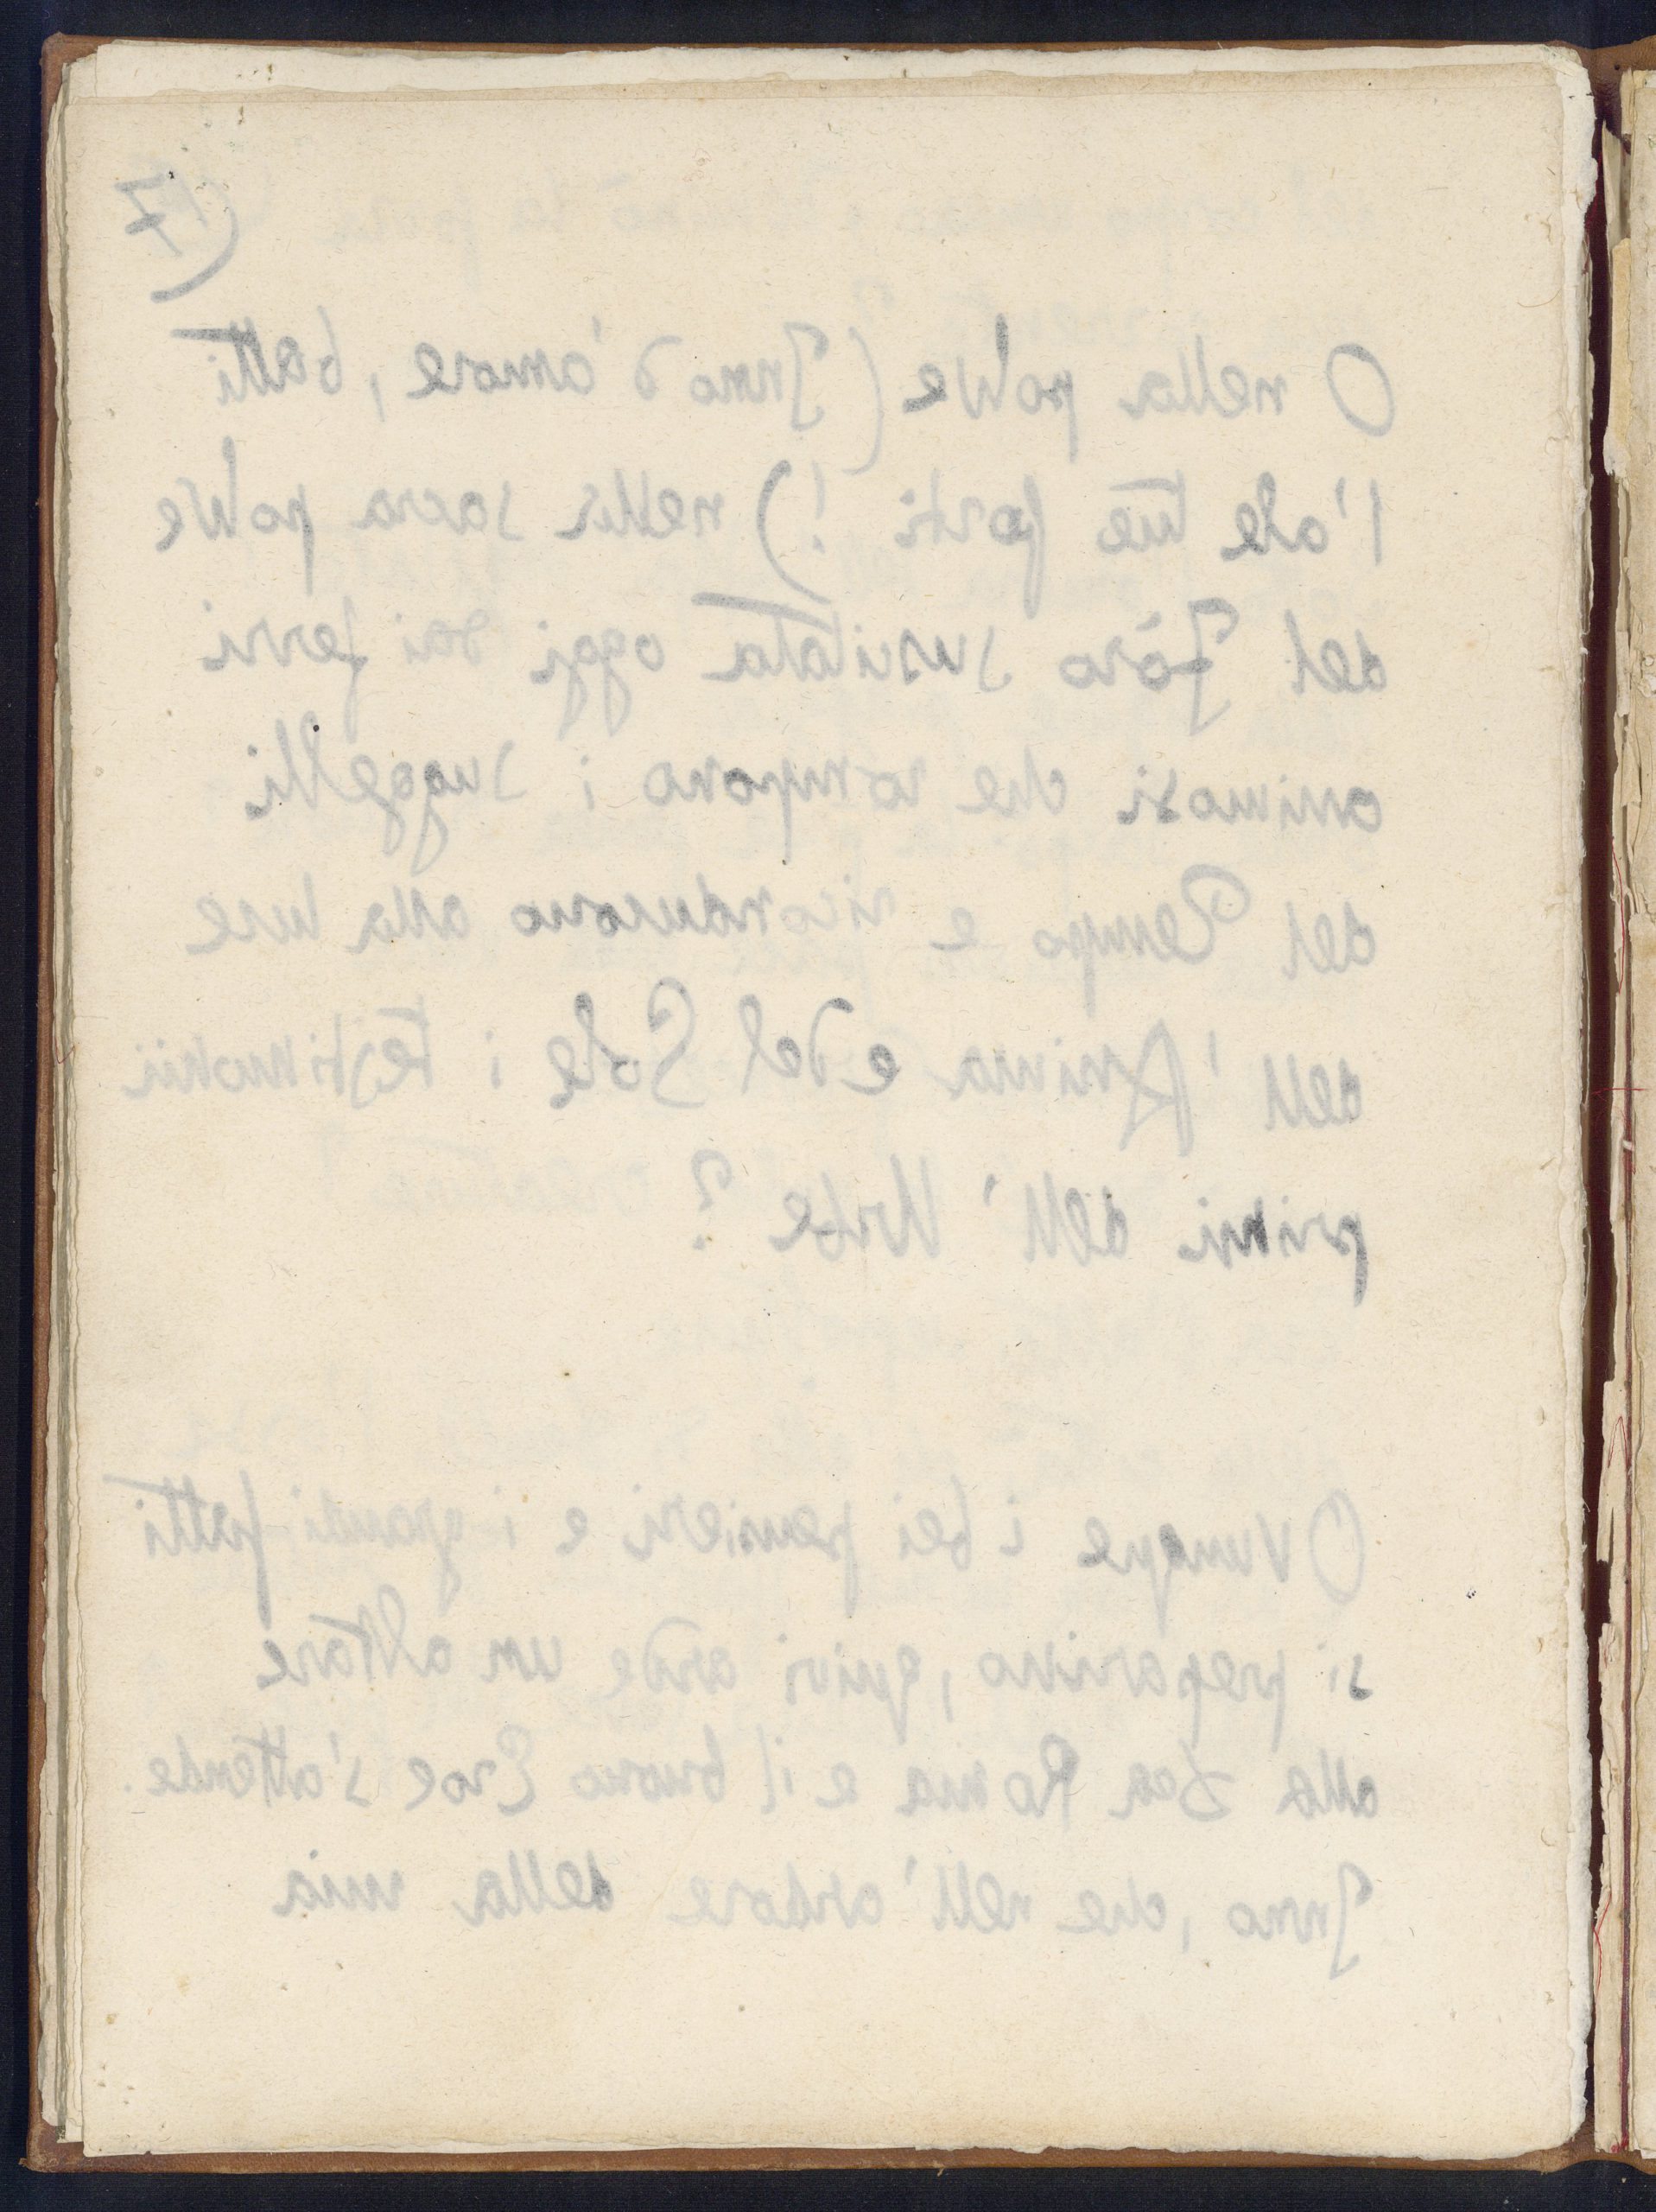 (7
O nella polve (Inno d'amore, batti
l'ale tue forti!) nella sacra polve
del Fòro suscitata oggi dai ferri
animosi che rompono i suggelli
del Tempo e riconducono alla luce
dell'Anima e del Sole i testimonii
primi dell'Urbe?
Ovunque i bei pensieri e i grandi fatti
si preparino, quivi arde un altare
alla Dea Roma e il buono Eroe s'attende.
Inno, che nell'ardore della mia